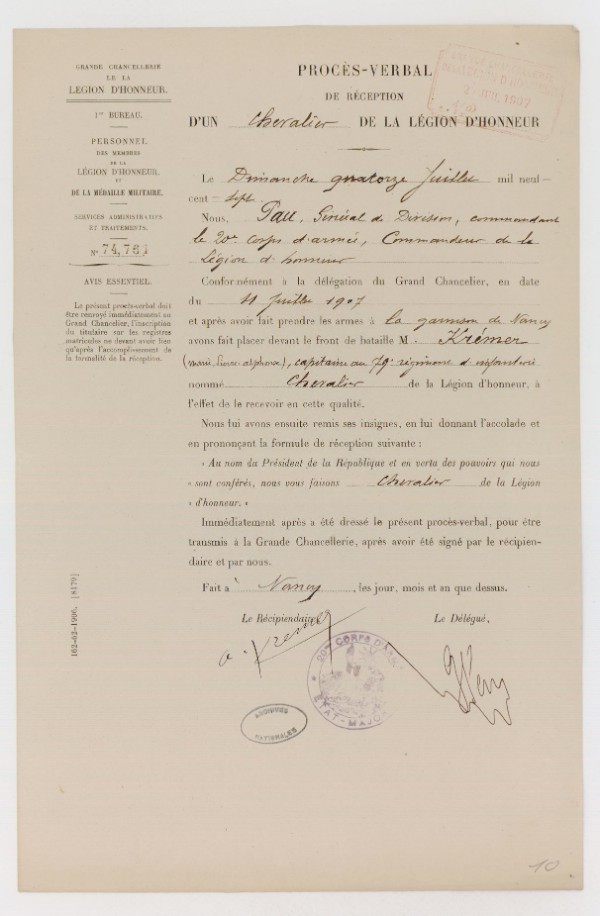 GRANDE CHANCELLERIE
DE LA
LEGION D'HONNEUR.
1er BUREAU.
PERSONNEL
DES MEMBRES
DE LA
LÉGION D'HONNEUR.
ET
DE LA MÉDAILLE MILITAIRE.
SERVICES ADMINISTRATIFS
ET TRAITEMENTS.
N° 74,781
AVIS ESSENTIEL.
Le présent procès-verbal doit
être renvoyé immédiatement au
Grand Chancelier, l'inscription
du titulaire sur les registres
matricules ne devant avoir lieu
qu'après l'accomplissement de
la formalité de la réception.
162-02-1906. [8179]
PROCÈS-VERBAL
DE RÉCEPTION
D'UN Chevalier DE LA LÉGION D'HONNEUR
1907
Le Dimanche quatorze Juillet mil neuf-
cent-sept
Nous, Pau, Général de Division, commandant
le 20e corps d'armée, Commandeur de la
Légion d'honneur
Conformément à la délégation du Grand Chancelier, en date
du 11 Juillet 1907
et après avoir fait prendre les armes à la garnison de Nancy
avons fait placer devant le front de bataille M. Krémer
(marie, pierre, alphonse), capitaine au 79e régiment d'infanterie
nommé Chevalier de la Légion d'honneur, à
l'effet de le recevoir en cette qualité.
Nous lui avons ensuite remis ses insignes, en lui donnant l'accolade et
en prononçant la formule de réception suivante :
« Au nom du Président de la République et en vertu des pouvoirs qui nous
» sont conférés, nous vous faisons Chevalier de la Légion
» d'honneur. »
Immédiatement après a été dressé le présent procès-verbal, pour être
transmis à la Grande Chancellerie, après avoir été signé par le récipien-
daire et par nous.
Fait à Nancy, les jour, mois et an que dessus.
Le Récipiendaire, Le Délégué,
a. Kremer
20e CORPS D'ARMÉE
ÉTAT-MAJOR
ARCHIVES
NATIONALES
10